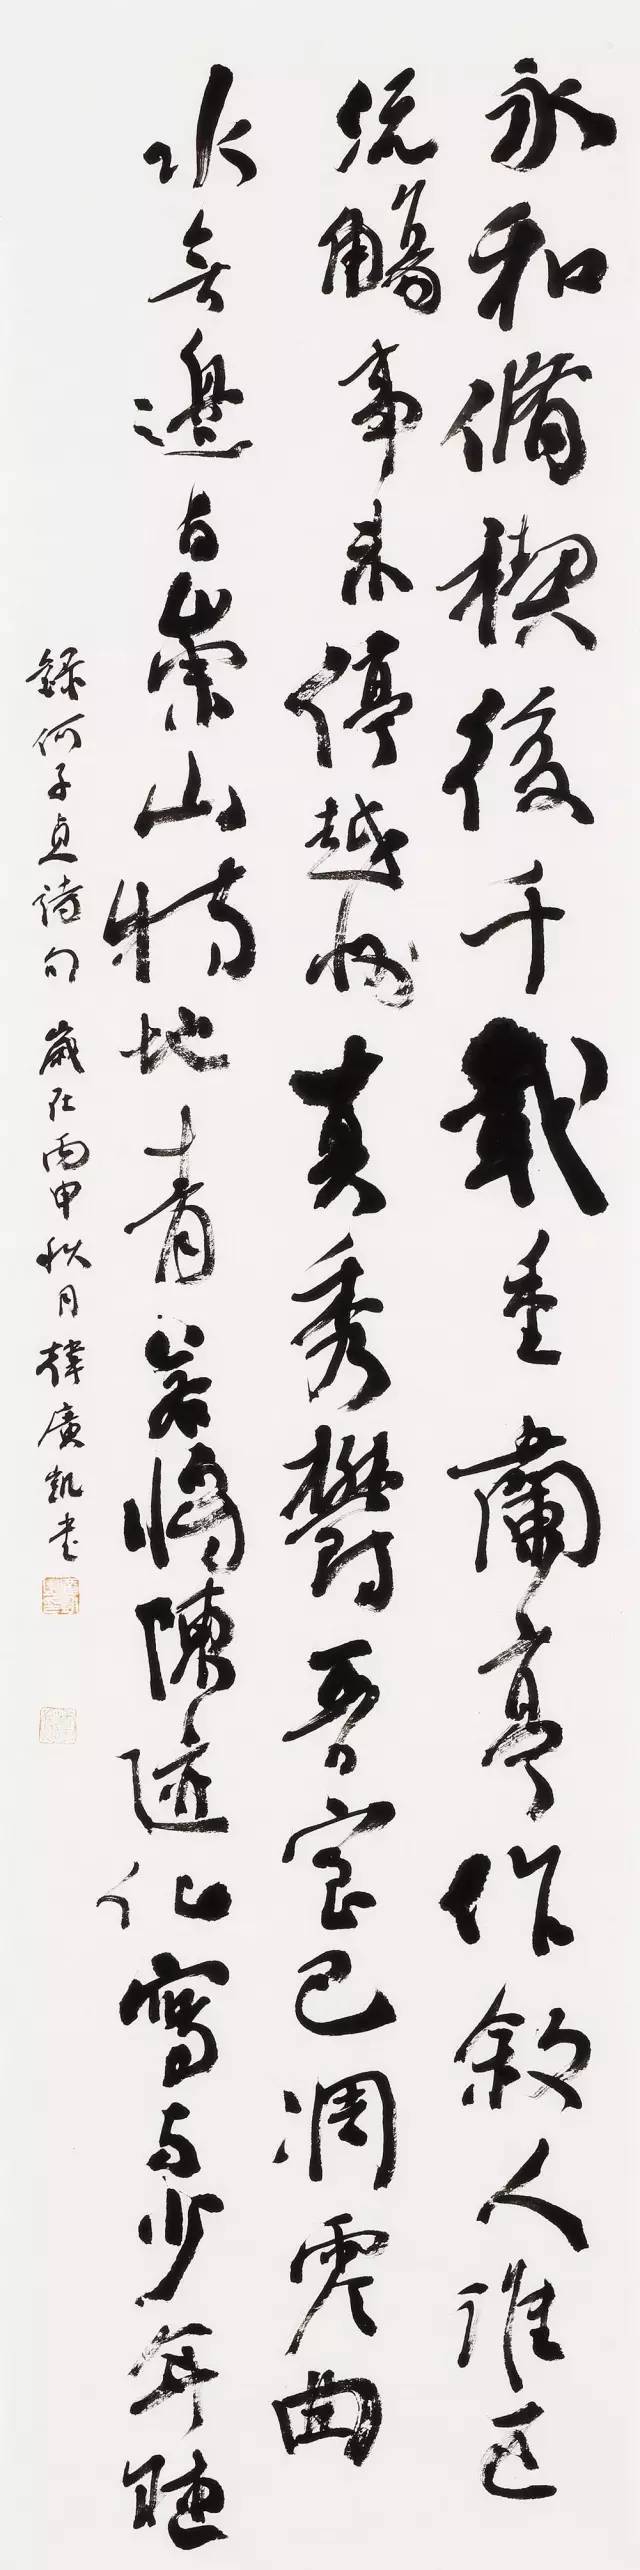 永和脩禊後千載重蘭亭作敘人誰匹
流觴事未停越州真秀鬱晉室已凋零曲
水無邊崇山特地青若將陳迹化寫與少年聽
錄何子貞詩句 歲在丙申秋月韓廣凱書